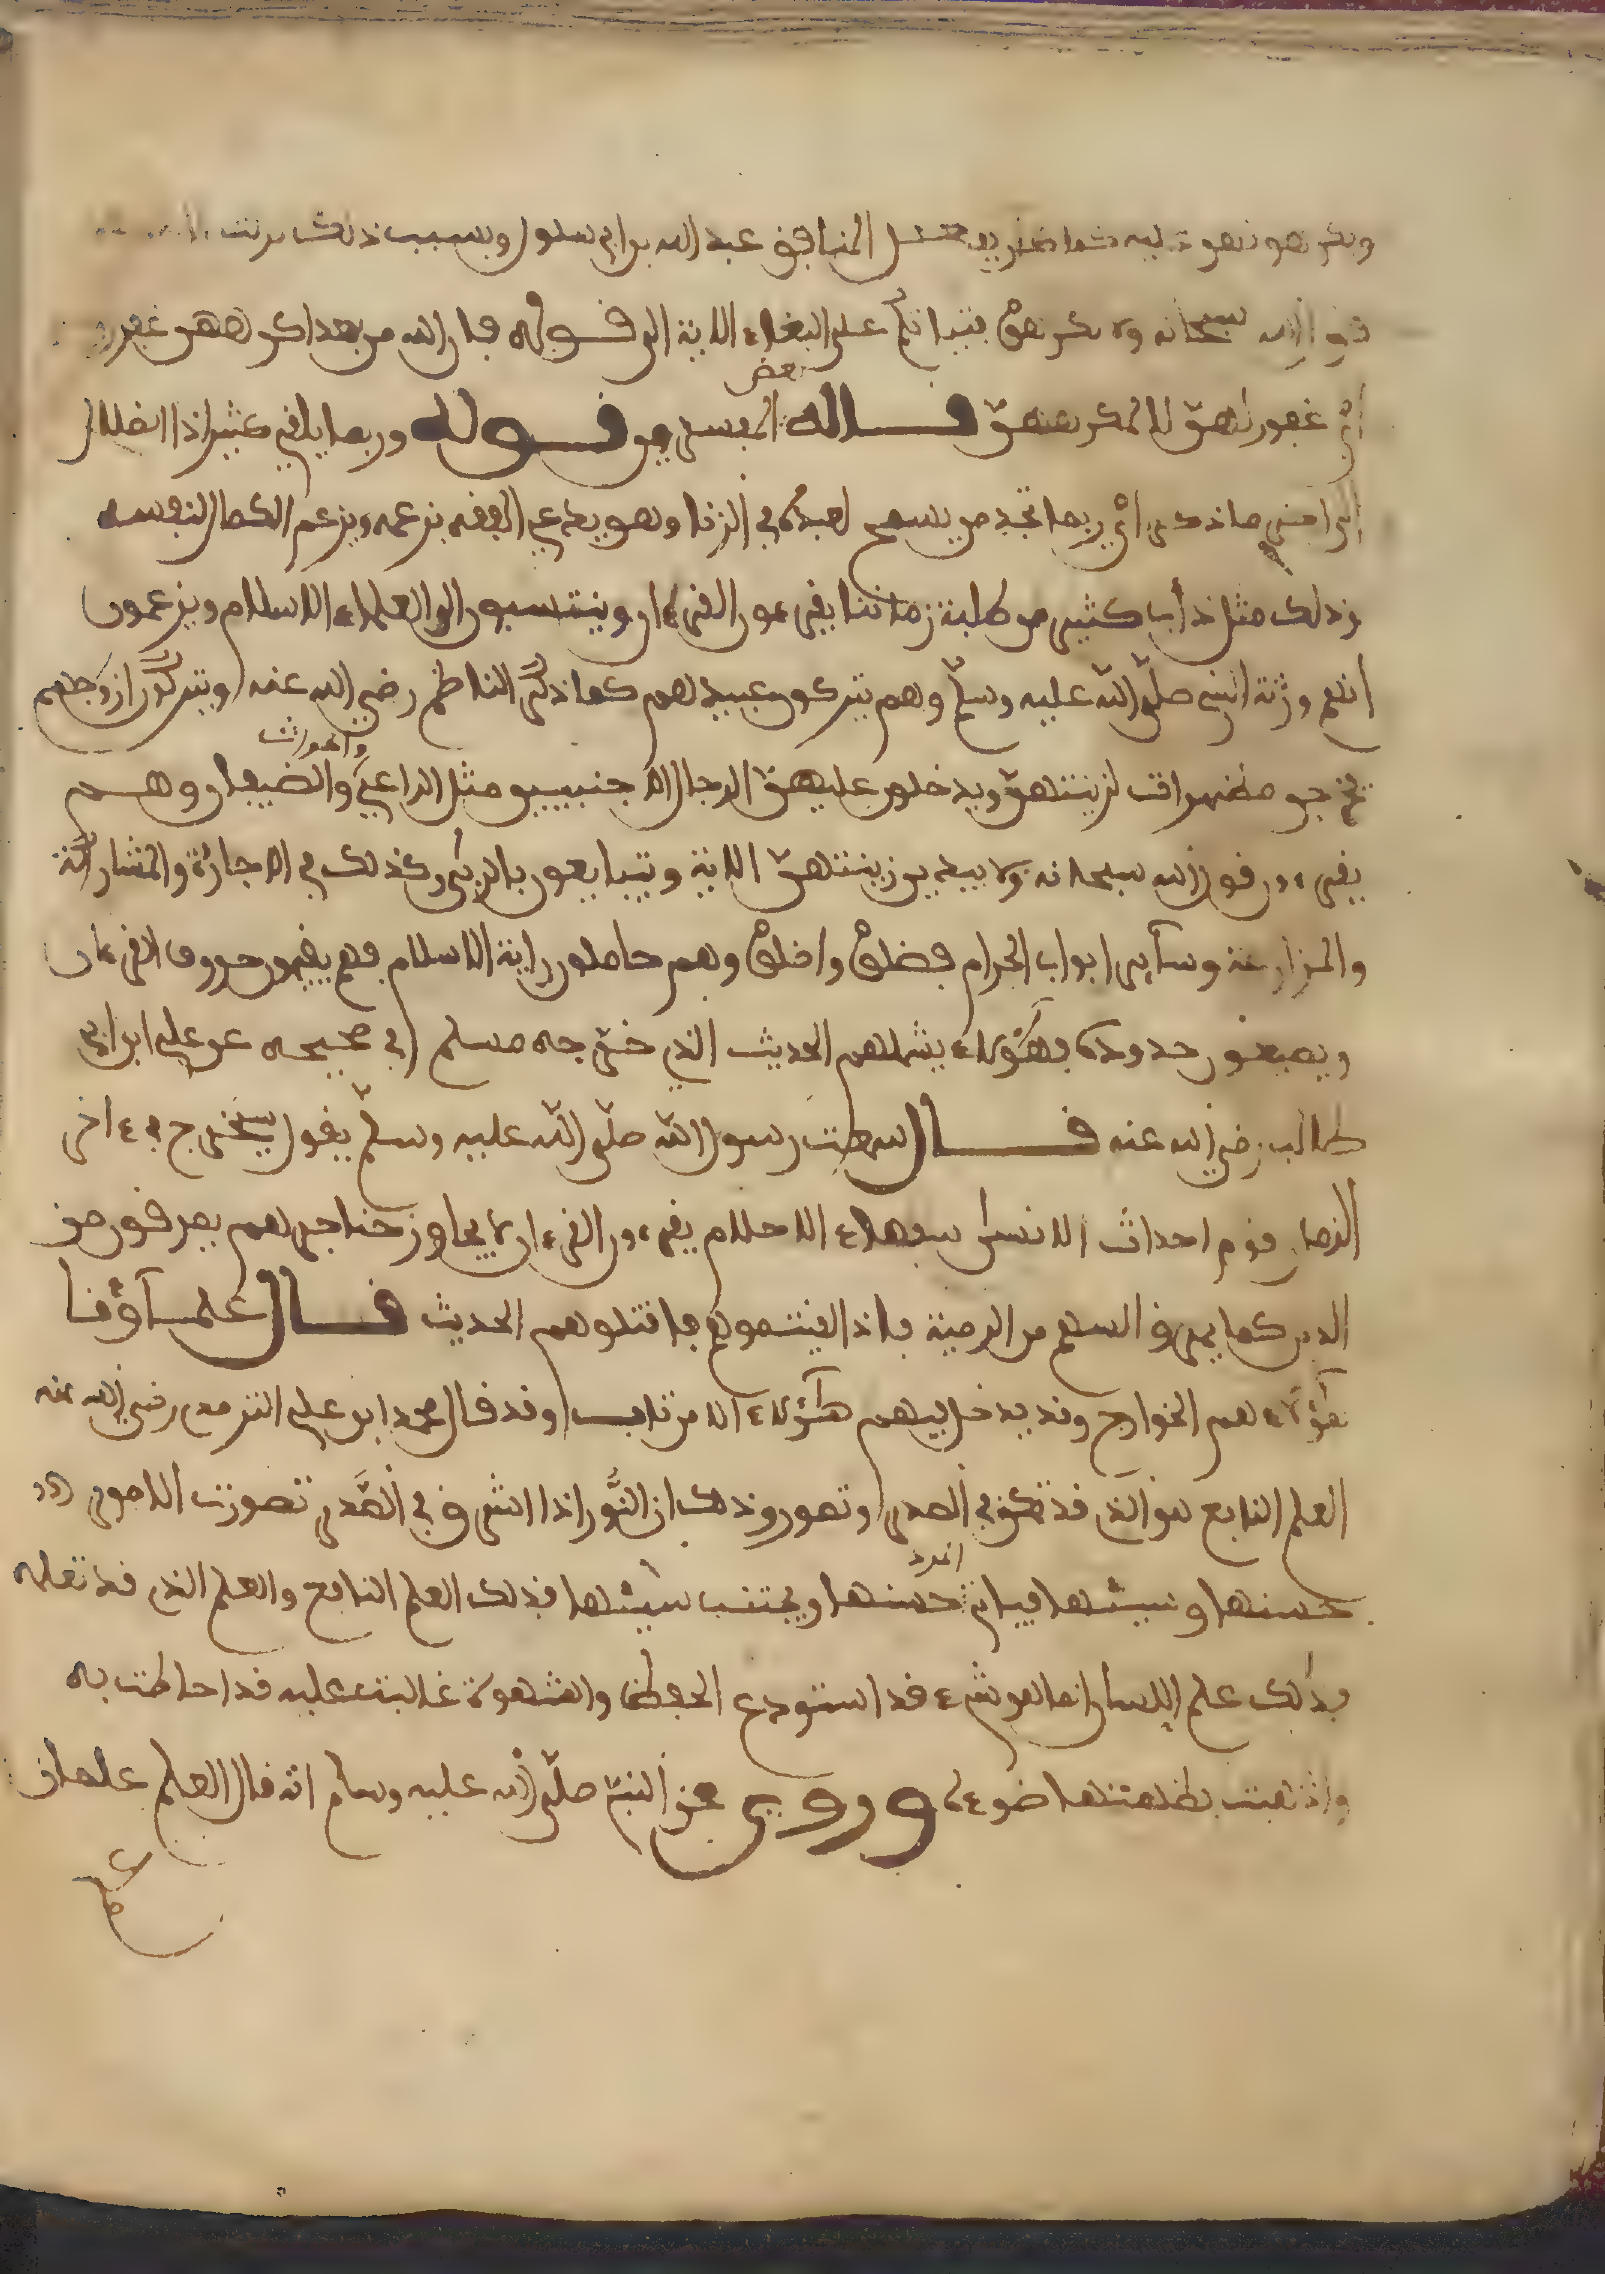 المنافق عبد الله بن ابي سلول وبسبب ذلك نزلت
قول الله سبحانه ولا تكرهوا فتياتكم على البغاء الاية الى قوله فان الله من بعد اكراههن غفور
اي غفور لهن لا لمكرههن قاله بعض المفسرين قوله وربما يلفى كثير اذا الضلال
الى اخر ما ذكر اي ربما تجد من يسمح لعبده في الزنا وهو يدعي الفقه بزعمه ويزعم الكمال لنفسه
وذلك مثل دأب كثير من طلبة زماننا يقرءون القرءان وينتسبون الى العلماء الاسلام ويزعمون
انهم ورثة النبي صلى الله عليه وسلم وهم يتركون عبيدهم كما ذكر الناظم رضي الله عنه ويتركون ازواجهم
تخرجن مظهرات لزينتهن ويدخلون عليهن الرجال الاجنبيين مثل الراعي والحراث والضيفان وهم
يقرءون قول الله سبحانه ولا يبدين زينتهن الاية ويتبايعون بالربى وكذلك في الاجارة والمشاركة
والمزارعة وسآير ابواب الحرام فضلوا واضلوا وهم حاملون راية الاسلام فهم يقيمون حروف القرءان
ويضيعون حدوده فهؤلاء يشملهم الحديث الذي خرجه مسلم في صحيحه عن علي ابن ابي
طالب رضي الله عنه قال سمعت رسول الله صلى الله عليه وسلم يقول سيخرج في ءاخر
الزمان قوم احداث الاسنان سفهاء الاحلام يقرءون القرءان لا يجاوز حناجرهم يمرقون من
الدين كما يمرق السهم من الرمية فاذا لقيتموهم فاقتلوهم الحديث قال علمآؤنا
هؤلاء هم الخوارج وقد يدخل فيهم هؤلاء الا من تاب وقد قال محمد ابن علي الترمدي رضي الله عنه
العلم النافع هو الذي قد تمكن في الصدر وتصور وذلك ان النور اذا اشرق في الصدر تصورت الامور
حسنها وسيئها فياتي العبد حسنها ويجتنب سيئها فذلك العلم النافع والعلم الذي قد تعلمه
فذلك علم اللسان انما هو شيء قد استودع الحفظ والشهوة غالبة عليه قد احاطت به
واذهبت بظلمتها ضوءه وروي عن النبي صلى الله عليه وسلم انه قال العلم علمان
علم